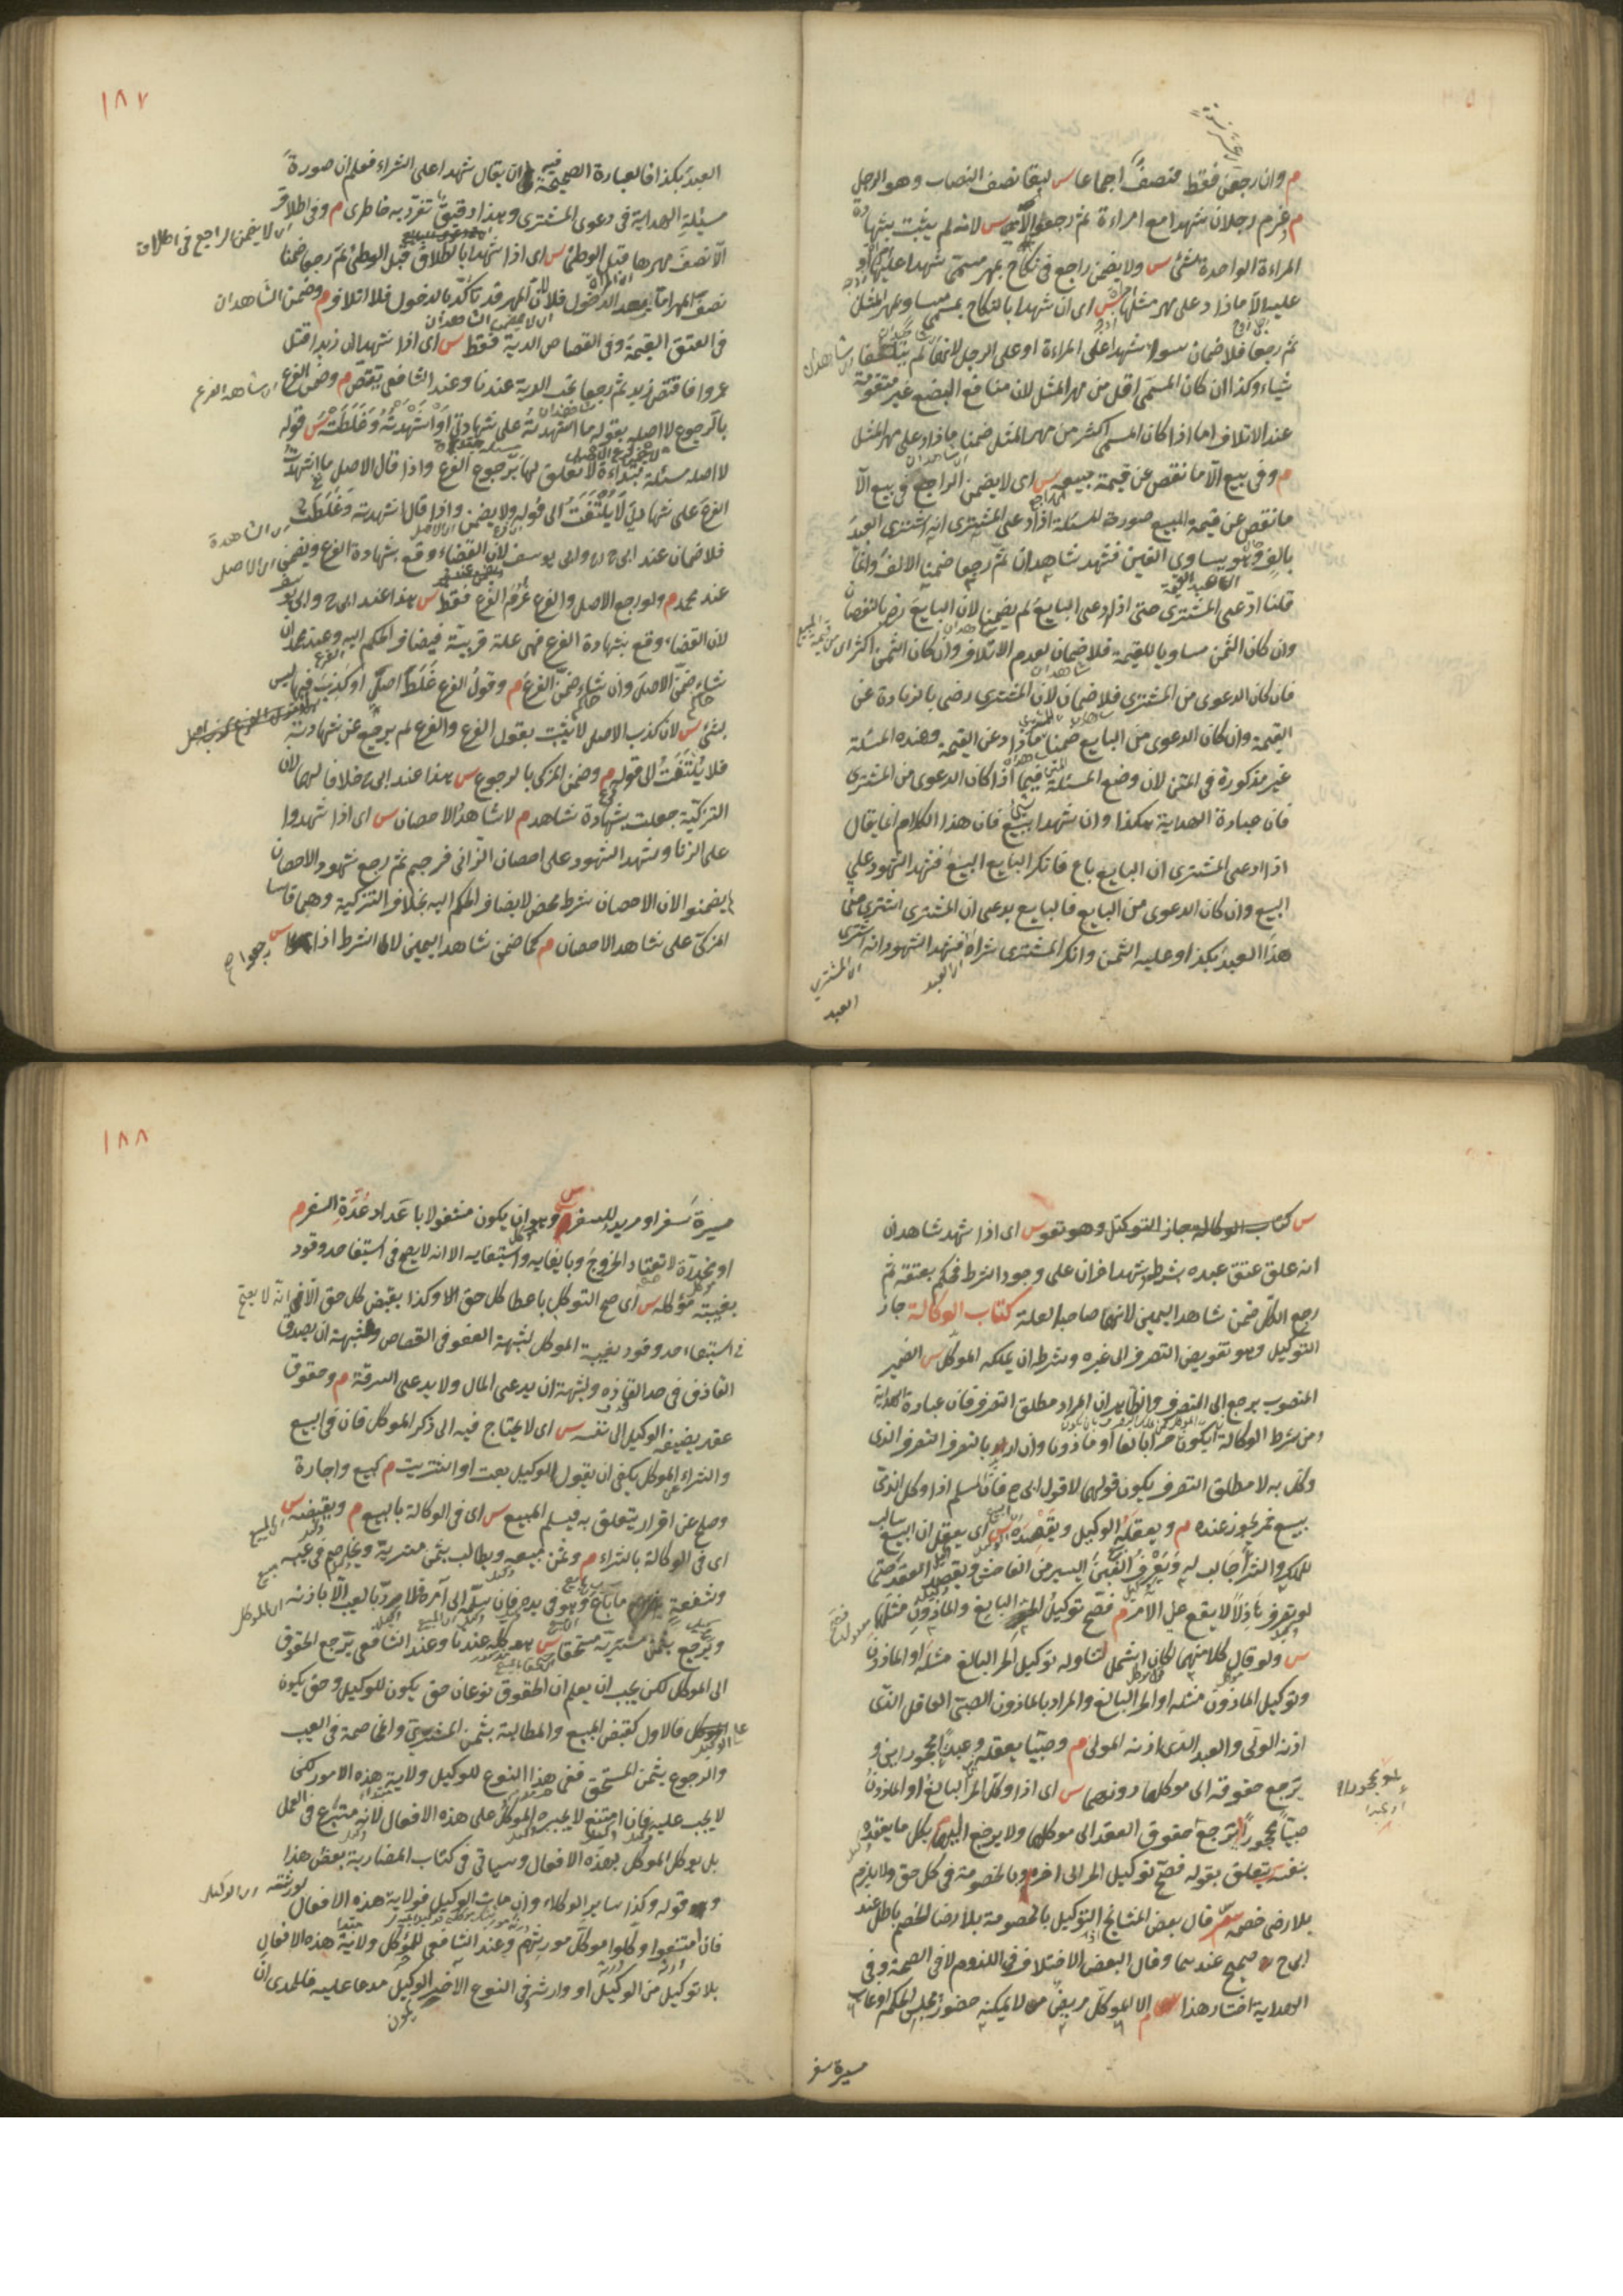 م وان رجعن فقط فنصف اجماعا س لبقا نصف النصاب وهو الرجل
م وغرم رجلان شهدا مع امراءة ثم رجعوا س لانه لم يثبت بشهادة
المراءة الواحدة شئ س ولا يضمن راجع في نكاح بمهر مسمى شهدا عليها او
عليه الا ما زاد على مهر مثلها س اى ان شهدا بالنكاح بمسمى مساو بمهر المثل
ثم رجعا فلا ضمان سواء شهدا على المراءة او على الرجل لانهما لم يتلفا
شياء وكذا ان كان المسمى اقل من مهر المثل لان منافع البضع غير متقومة
عند الاتلاف اما اذا كان المسمى اكثر من مهر المثل ضمنا ما زاد على مهر المثل
م وفى بيع الا ما نقص عن قيمة مبيعه س اى لا يضمن الراجع فى بيع الا
ما نقص عن قيمة المبيع صورة المسئلة اذا ادعى المشترى انه اشترى العبد
بالف وهو يساوى الفين فشهد شاهدان ثم رجعا ضمنا الالف وانما
قلنا ادعى المشترى حتى اذا ادعى البايع لم يضمنا لان البايع رضى بالنقصان
وان كان الثمن مساويا للقيمة فلا ضمان لعدم الاتلاف وان كان الثمن اكثر
فان كان الدعوى من المشترى فلا ضمان لان المشترى رضى بالزيادة عن
القيمة وان كان الدعوى من البايع ضمنا ما زاد عن القيمة وهذه المسئلة
غير مذكورة فى المتن لان وضع المسئلة فيما اذا كان الدعوى من المشترى
فان عبارة الهداية هكذا وان شهدا ببيع فان هذا الكلام انما يقال
اذا ادعى المشترى ان البايع باع فانكر البايع البيع فشهد الشهود على
البيع وان كان الدعوى من البايع فالبايع يدعى ان المشترى اشترى منى
هذا العبد بكذا وعليه الثمن وانكر المشترى شراه فشهد الشهود انه اشترى
العبد
١٨٧
العبد بكذا فالعبارة الصحيحة فيه ان يقال شهدا على الشراء فعلم ان صورة
مسئلة الهداية فى دعوى المشترى وهذا دقيق تفرد به خاطرى م وفى اطلاق
الا نصف مهرها قبل الوطئ س اى اذا شهدا بالطلاق قبل الوطئ ثم رجعا ضمنا
نصف المهر اما بعد الدخول فلا لان المهر قد تاكد بالدخول فلا اتلاف م وضمن الشاهدان
فى العتق القيمة وفى القصاص الدية فقط س اى اذا شهدا ان زيدا قتل
عمروا فاقتص زيد ثم رجعا تجب الدية عندنا وعند الشافعى يقتص م وضمن الفرع
بالرجوع لا اصله بقوله ما اشهدته على شهادتى او اشهدته وغلطت س قوله
لا اصله مسئلة مبتداءة لا تعلق لها برجوع الفرع واذا قال الاصل ما اشهدت
الفرع على شهادتى لا يلتفت الى قوله ولا يضمن واذا قال اشهدته وغلطت
فلا ضمان عند ابى ح وابى يوسف لان القضاء وقع بشهادة الفرع ويضمن
عند محمد م ولو رجع الاصل والفرع غرم الفرع فقط س هذا عند ابى ح وابى يوسف
لان القضاء وقع بشهادة الفرع فهى علة قريبة فيضاف الحكم اليه وعند محمد ان
شاء ضمن الاصل وان شاء ضمن الفرع م وقول الفرع غلط اصلى او كذب فيها ليس
بشئ س لان كذب الاصل لا يثبت بقول الفرع والفرع لم يرجع عن شهادته
فلا يلتفت الى قوله م وضمن المزكى بالرجوع س هذا عند ابى ح خلافا لهما لان
التزكية جعلت شهادة شاهد م لا شاهد الاحصان س اى اذا شهدوا
على الزنا وشهد الشهود على احصان الزانى فرجم ثم رجع شهود الاحصان
لم يضمنوا لان الاحصان شرط محض لا يضاف الحكم اليه بخلاف التزكية وهما قاسا
المزكى على شاهد الاحصان م كما ضمن شاهد اليمين لا الشرط اذا رجعوا
س كتاب الوكالة جاز التوكيل وهو تفو س اى اذا شهد شاهدان
انه علق عتق عبده بشرط وشهد اخران على وجود الشرط فحكم بعتقه ثم
رجع الكل ضمن شاهدا اليمين لانهما صاحبا العلة كتاب الوكالة جاز
التوكيل وهو تفويض التصرف الى غيره وشرط ان يملكه الموكل س الضمير
المنصوب يرجع الى التصرف والظاهر ان المراد مطلق التصرف فان عبارة الهداية
ومن شرط الوكالة ان يكون حرا بالغا او ماذونا وان اريد بالتصرف التصرف الذى
وكل به لا مطلق التصرف يكون قولهما لا قول ابى ح فان المسلم اذا وكل الذمى
ببيع خمر يجوز عنده م ويعقله الوكيل ويقصده س اى يعقل ان البيع سالب
للملك والشراء جالب له ويعرف الغبن اليسير من الفاحش ويقصد العقد حتى
لو تصرف هازلا لا يقع عن الامر م فصح توكيل الحر البالغ والماذون مثلهما
س ولو قال كلا منهما لكان اشمل لتناوله توكيل الحر البالغ مثله او الماذون
وتوكيل الماذون مثله او الحر البالغ والمراد بالماذون الصبى العاقل الذى
اذنه الولى والعبد الذى اذنه المولى م وصبيا يعقله وعبدا محجورين و
ترجع حقوقه الى موكلهما دونهما س اى اذا وكل الحر البالغ او الماذون
صبيا محجورا ترجع حقوق العقد الى موكلهما ولا يرجع اليهما بكل ما يعقده
بنفسه يتعلق بقوله فصح توكيل الحر الى اخره وبالخصومة فى كل حق ولا يلزم
بلا رضى خصمه س قال بعض المشائخ التوكيل بالخصومة بلا رضا الخصم باطل عند
ابى ح صحيح عندهما وقال البعض الاختلاف فى اللزوم لا فى الصحة وفى
الهداية اختار هذا م الا لموكل مريض لا يمكنه حضور مجلس الحكم او غايب
مسيرة سفر
١٨٨
مسيرة سفر او مريد للسفر س وهو ان يكون مشغولا باعداد عدة السفر م
او مخدرة لا تعتاد الخروج وبايفايه واستيفايه الا انه لا يصح فى استيفا حد وقود
بغيبة موكله س اى صح التوكل باعطا كل حق وكذا بقبض كل حق الا انه لا يصح
فى استيفاء حد وقود بغيبة الموكل لشبهة العفو فى القصاص وشبهة ان يصدق
القاذف فى حد القذف ولشبهة ان يدعى المال ولا يدعى السرقة م وحقوق
عقد يضيفه الوكيل الى نفسه س اى لا يحتاج فيه الى ذكر الموكل فان فى البيع
والشراء عن الموكل يكفى ان يقول الوكيل بعت او اشتريت م كبيع واجارة
وصلح عن اقرار يتعلق به فيسلم المبيع س اى فى الوكالة بالبيع م ويقبضه س
اى فى الوكالة بالشراء م وثمن مبيعه ويطالب بثمن مشريه ويخاصم فى عيبه
وشفعة ما باع وهو فى يده فان سلمه الى آمره فلا يرد بالعيب الا باذنه
ويرجع بثمن مشتريه مستحقا س هذا كله عندنا وعند الشافعى يرجع الحقوق
الى الموكل لكن يجب ان يعلم ان الحقوق نوعان حق يكون للوكيل وحق يكون
على الوكيل فالاول كقبض المبيع والمطالبة بثمن المشترى والمخاصمة فى العيب
والرجوع بثمن المستحق ففى هذا النوع للوكيل ولاية هذه الامور لكن
لا يجب عليه فان امتنع لا يجبره الموكل على هذه الافعال لانه متبرع فى العمل
بل يوكل الموكل بهذه الافعال وسياتى فى كتاب المضاربة بعض هذا
وهو قوله وكذا ساير الوكلاء وان مات الوكيل فولاية هذه الافعال لورثته
فان امتنعوا وكلوا موكل مورثهم وعند الشافعى للموكل ولاية هذه الافعال
بلا توكيل من الوكيل او وارثه وفى النوع الآخر الوكيل مدعا عليه فللمدعى ان
يكون